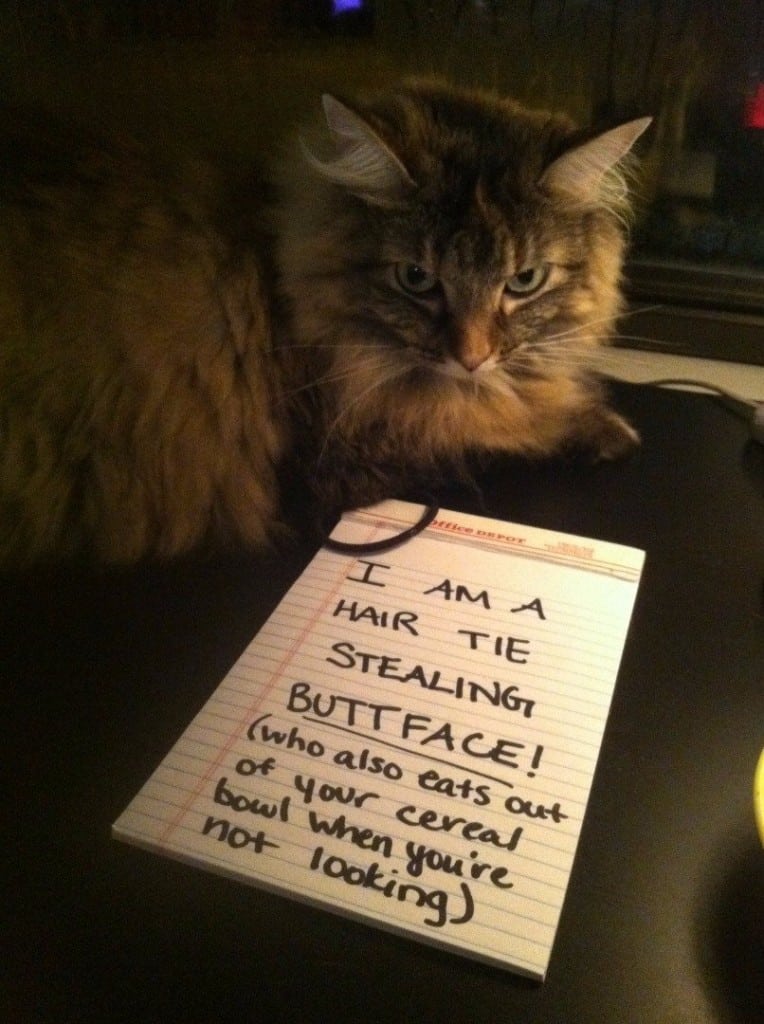 Office DEPOT
I AM A
HAIR TIE
STEALING
BUTTFACE!
(who also eats out
of your cereal
bowl when you're
not looking)